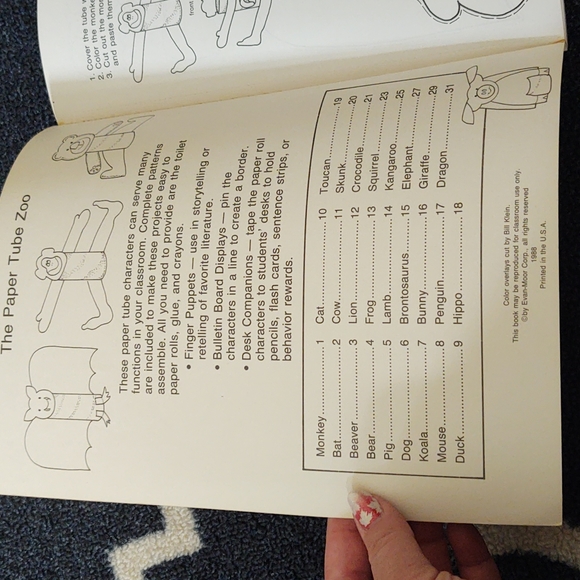 1. Cover the tube
2. Color the
3. Cut out the
and paste
front
The Paper Tube Zoo
These paper tube characters can serve many
functions in your classroom. Complete patterns
are included to make these projects easy to
assemble. All you need to provide are the toilet
paper rolls, glue, and crayons.
• Finger Puppets — use in storytelling or
retelling of favorite literature.
• Bulletin Board Displays — pin the
characters in a line to create a border.
• Desk Companions — tape the paper roll
characters to students' desks to hold
pencils, flash cards, sentence strips, or
behavior rewards.
Monkey 1
Bat 2
Beaver 3
Bear 4
Pig 5
Dog 6
Koala 7
Mouse 8
Duck 9
Cat 10
Cow 11
Lion 12
Frog 13
Lamb 14
Brontosaurus 15
Bunny 16
Penguin 17
Hippo 18
Toucan 19
Skunk 20
Crocodile 21
Squirrel 23
Kangaroo 25
Elephant 27
Giraffe 29
Dragon 31
Color overlays cut by Bill Klein.
This book may be reproduced for classroom use only.
©by Evan-Moor Corp., all rights reserved
1988
Printed in the U.S.A.